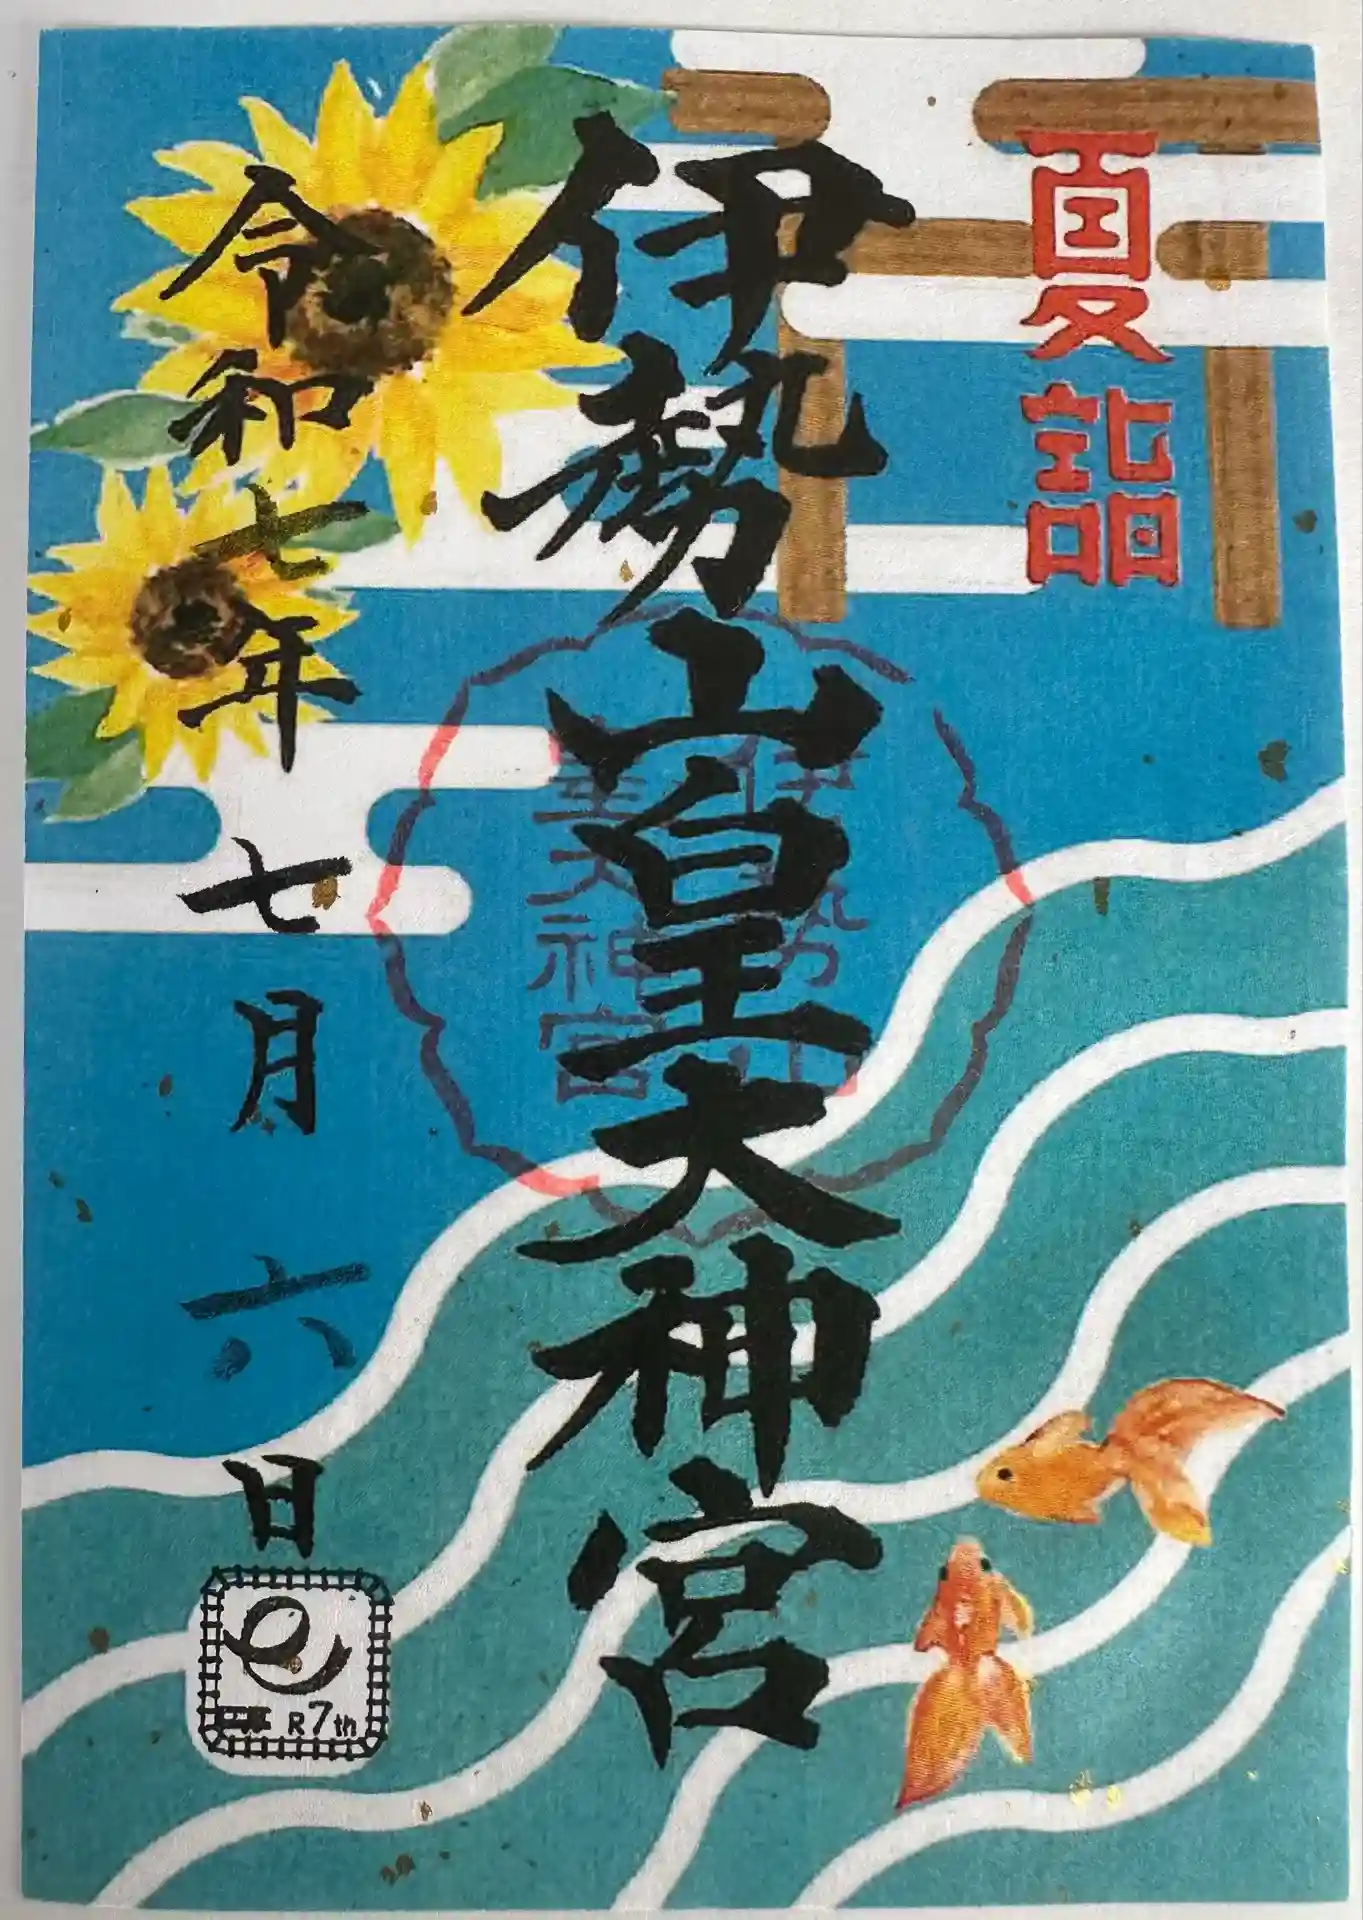 夏詣
伊勢山皇大神宮
伊勢山
皇大神宮
令和七年七月六日
R7th